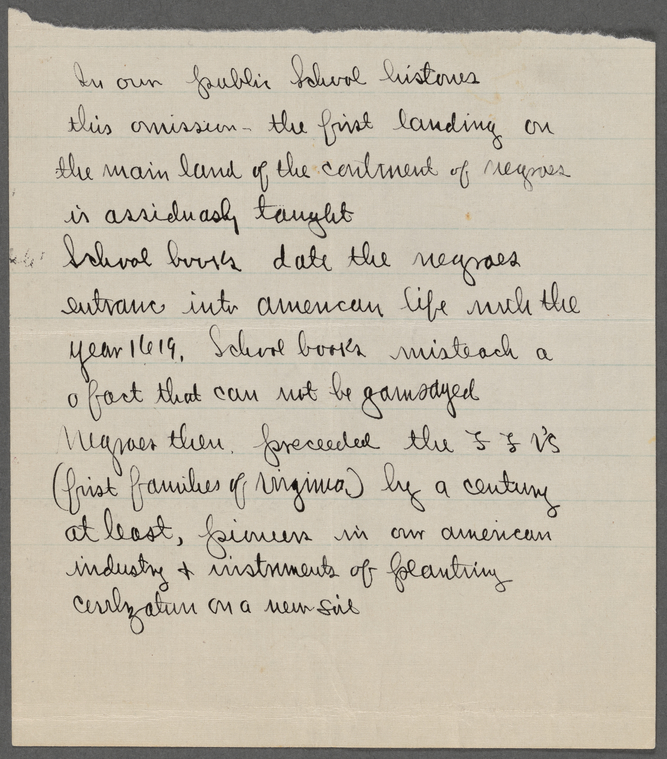 In our public School histories
this omission - the first landing on
the main land of the continent of negroes
is assiduasly taught
School books date the negroes
entranc into american life with the
year 1619. School books misteach a
a fact that can not be gainsayed
Negroes then. preceeded the F F V's
(first families of Virginia) by a century
at least, pioneers in our american
industry & instruments of planting
civilization on a new soil